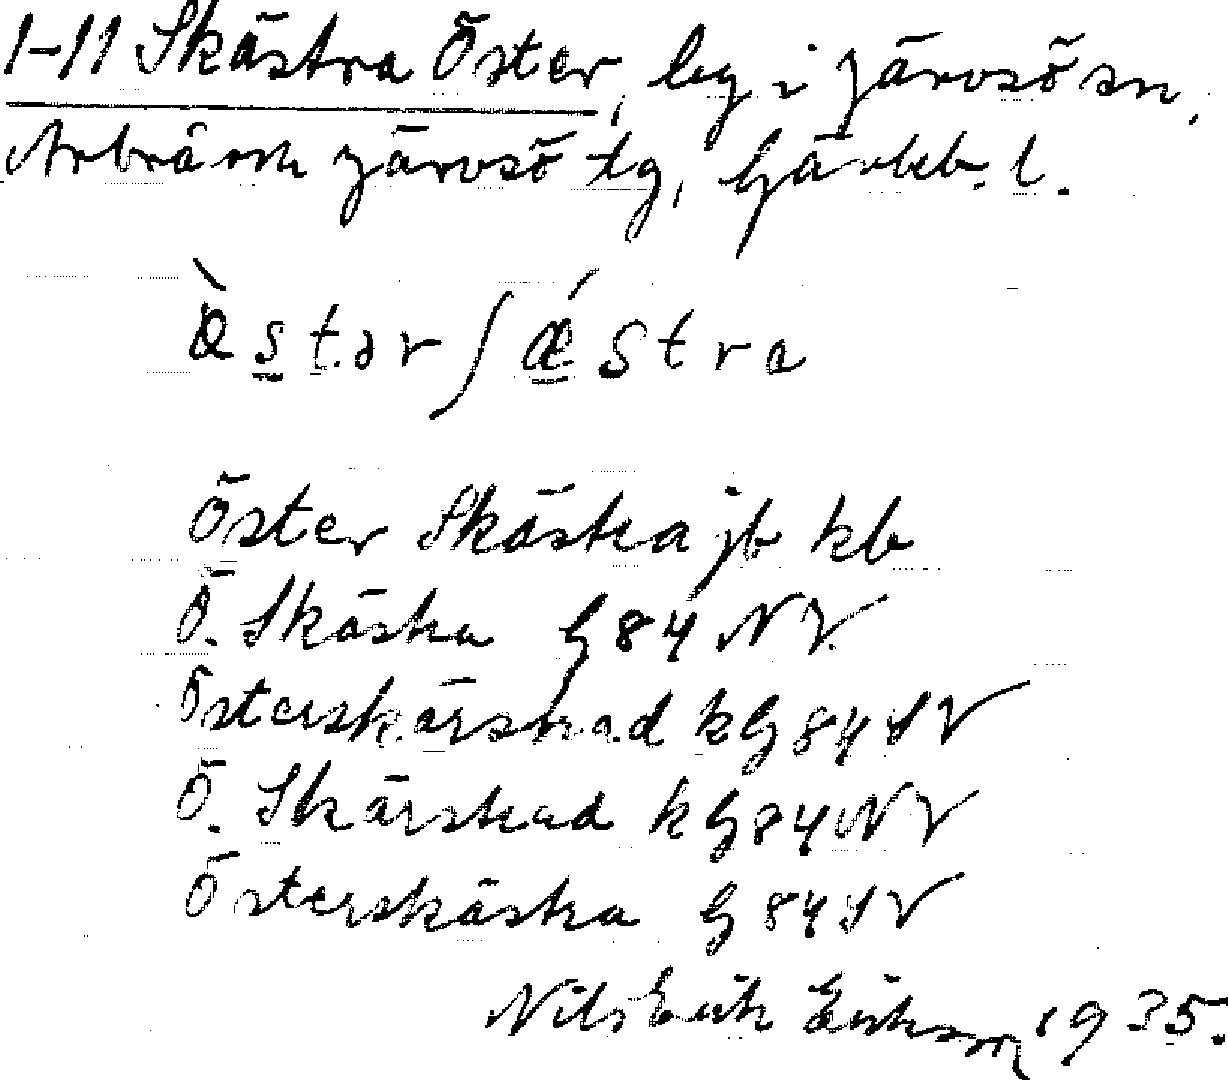 1-11 Skästra Öster, by i Järvsö sn,
Arbrå och Järvsö tg, Gävleb. l.
Öster Skästra jb kb
Ö. Skästra G84 NV.
Österskärstrad k G84 SV
Ö. Skärstrad k G84 NV
Österskästra G84 SV
Nils Erik Erikson 1935.